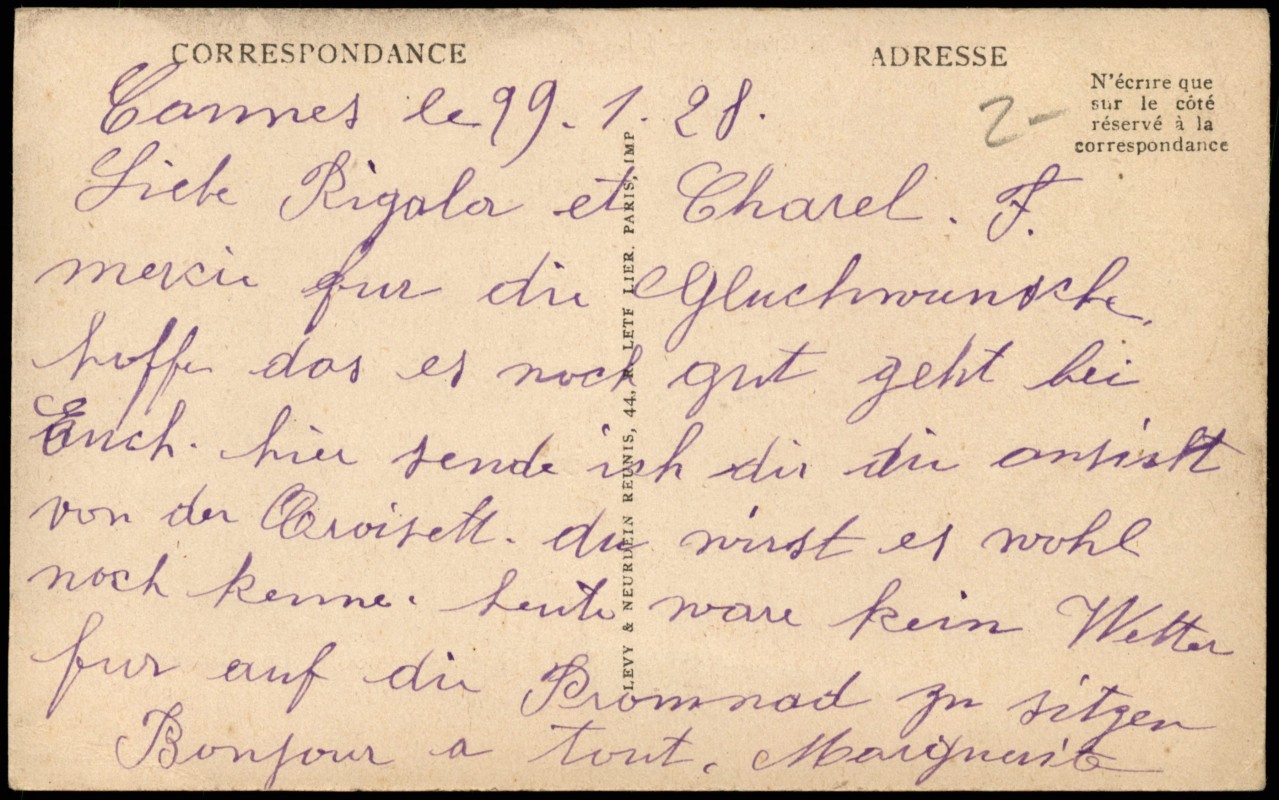 CORRESPONDANCE
ADRESSE
N'écrire que
sur le côté
réservé à la
correspondance
2-
Cannes le 99. 1. 28.
Liebe Rigala et Charel. F.
mercie fur die Gluchwunsche,
hoffe das es noch gut geht bei
Euch. hier sende ich dir die ansicht
von der Croisett. du wirst es wohl
noch kenne. heute ware kein Wetter
fur auf die Promnad zu sitzen
Bonjour a tout. Marguerite
LEVY & NEURDEIN REUNIS, 44, R. LETELLIER. PARIS, IMP